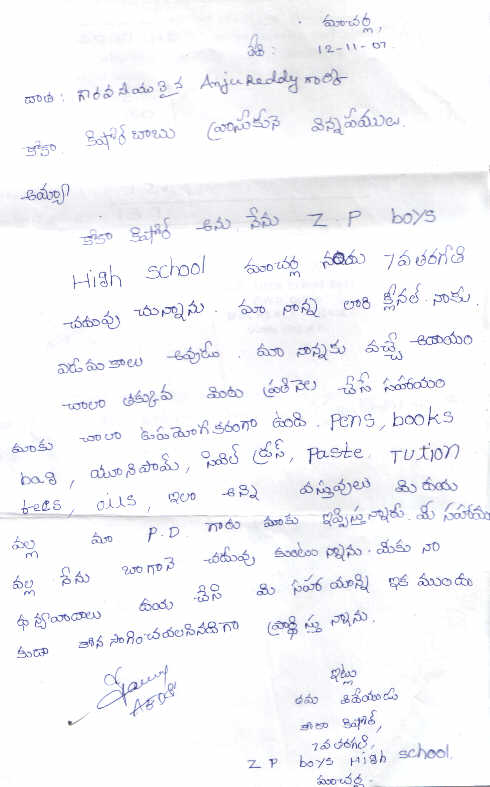 మాచర్ల,
తేది: 12-11-07.
దాత: గౌరవనీయులైన Anju Reddy గారికి
కోలా కిషోర్ బాబు వ్రాసుకునే విన్నపములు.
అయ్యా
కోలా కిషోర్ అను నేను Z.P boys
High school మాచర్ల నందు 7వ తరగతి
చదువు చున్నాను. మా నాన్న లారి క్లీనర్. నాకు
మా నాన్నకు వచ్చే ఆదాయం
చాలా తక్కువ మీరు ప్రతినెల చేసే సహాయం
మాకు చాలా ఉపయోగకరంగా ఉంది. Pens, books
bag, యూనిపామ్, సివిల్ డ్రస్, paste. TUtion
fees, oils, ఇలా అన్ని వస్తువులు మీ దయ
వల్ల మా P.D. గారు మాకు ఇప్పిస్తున్నారు. మీ సహాయం
వల్ల నేను బాగానే చదువు కుంటున్నాను. మీకు నా
ధన్యవాదాలు దయ చేసి మీ సహాయాన్ని ఇక ముందు
కుడా కొన సాగించవలసినదిగా ప్రార్థిస్తున్నాను.
ఇట్లు
తమ విదేయుడు
కోలా కిషోర్,
7వ తరగతి,
Z P boys High school.
మాచర్ల.